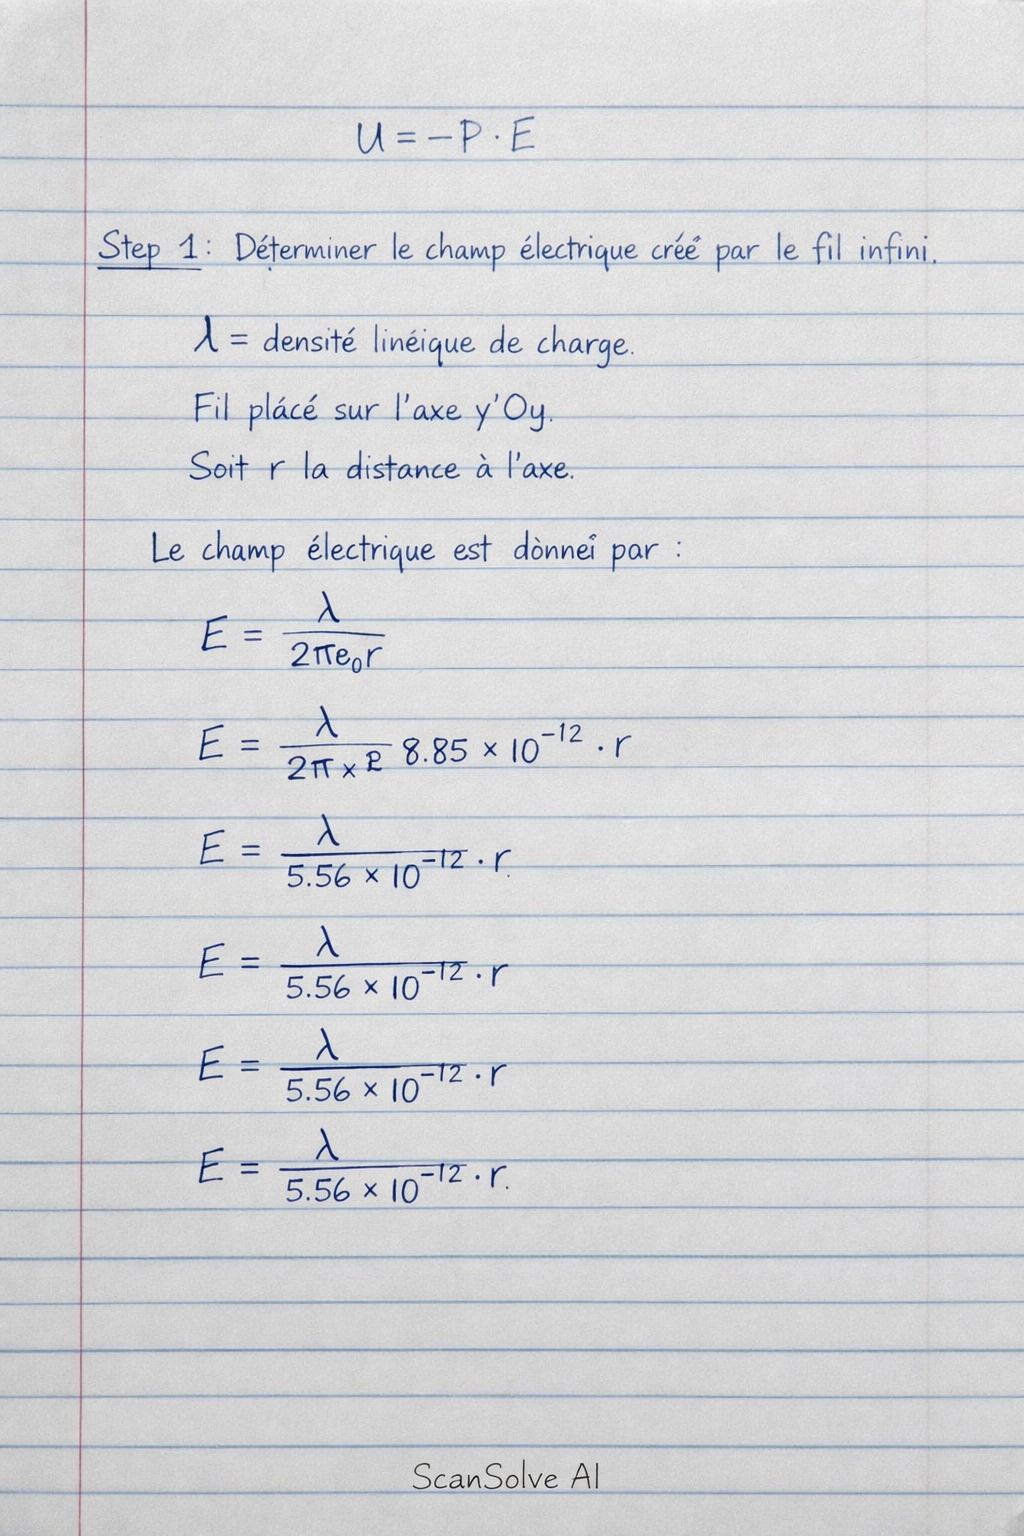 U = −P · E
Step 1: Déterminer le champ électrique créé par le fil infini.
λ = densité linéique de charge.
Fil plácé sur l'axe y'Oy.
Soit r la distance à l'axe.
Le champ électrique est dònneî par :
E = λ / 2πe₀r
E = λ / 2π × 8.85 × 10⁻¹² · r
E = λ / 5.56 × 10⁻¹² · r.
E = λ / 5.56 × 10⁻¹² · r
E = λ / 5.56 × 10⁻¹² · r
E = λ / 5.56 × 10⁻¹² · r.
ScanSolve AI